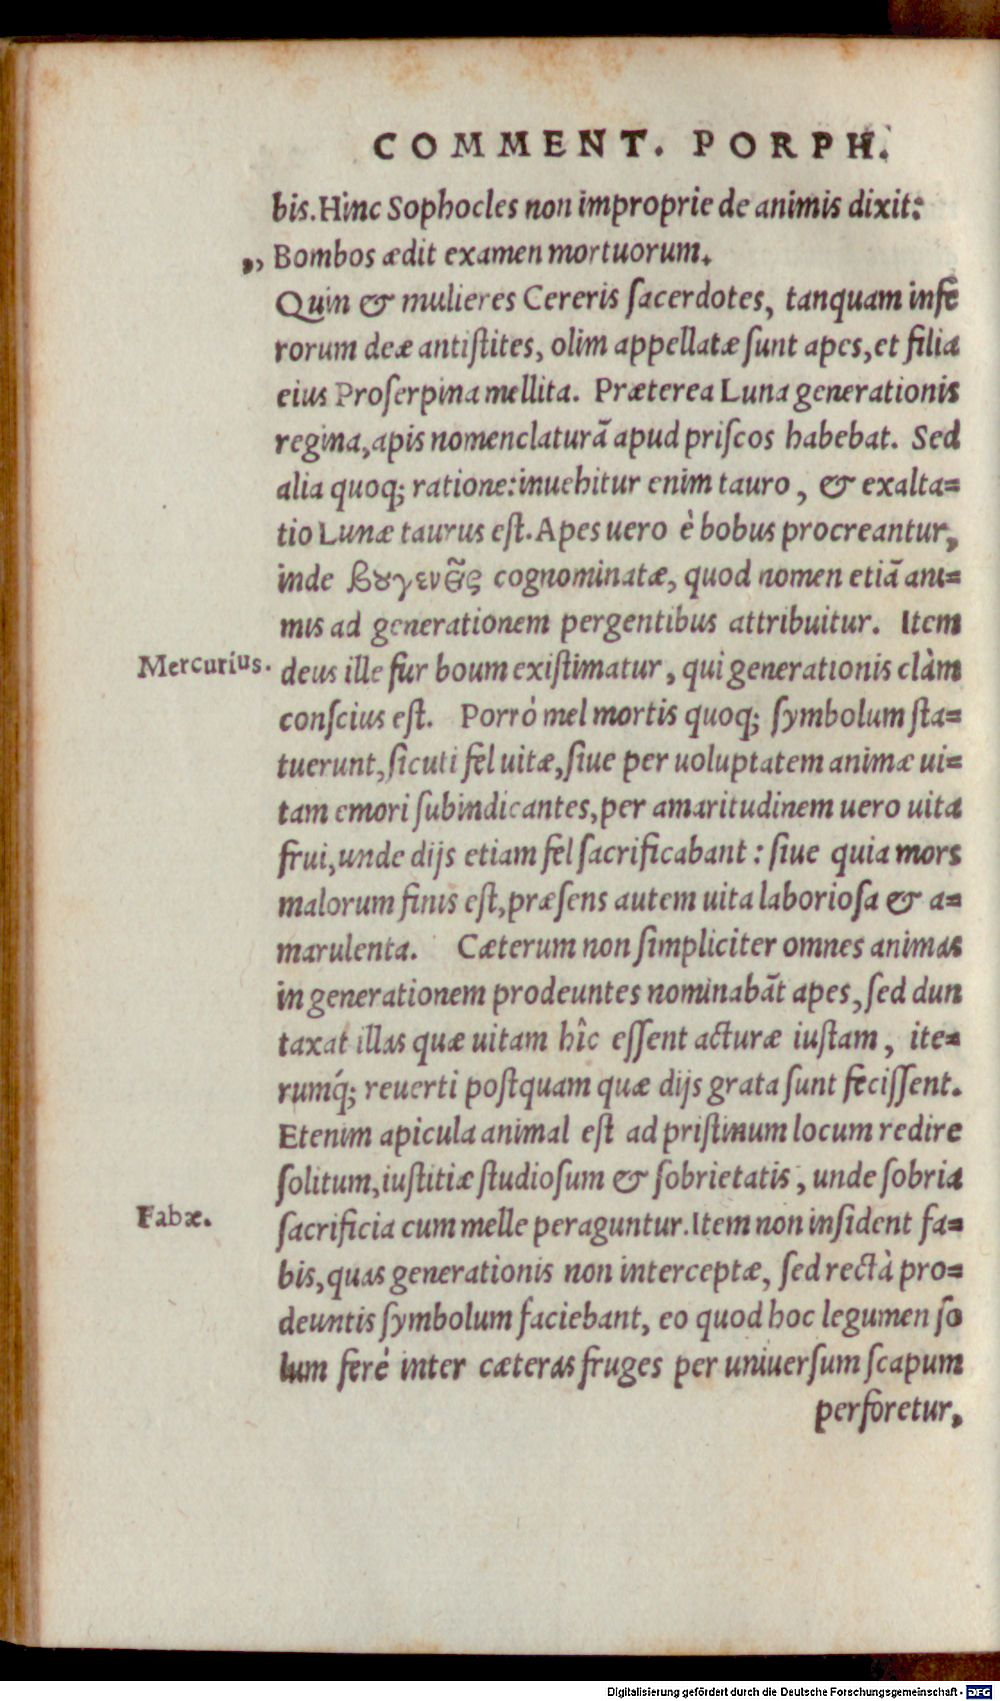 COMMENT. PORPH.
bis. Hinc Sophocles non improprie de animis dixit:
„ Bombos ædit examen mortuorum.
Quin & mulieres Cereris ſacerdotes, tanquam infē
rorum deæ antiſtites, olim appellatæ ſunt apes, et filia
eius Proſerpina mellita. Præterea Luna generationis
regina, apis nomenclaturā apud priſcos habebat. Sed
alia quoq; ratione: inuehitur enim tauro, & exalta=
tio Lunæ taurus eſt. Apes uero è bobus procreantur,
inde βουγενεῖς cognominatæ, quod nomen etiā ani=
mis ad generationem pergentibus attribuitur. Item
Mercurius. deus ille fur boum exiſtimatur, qui generationis clàm
conſcius eſt. Porrò mel mortis quoq; ſymbolum ſta=
tuerunt, ſicuti fel uitæ, ſiue per uoluptatem animæ ui=
tam emori ſubindicantes, per amaritudinem uero uita
frui, unde dijs etiam fel ſacrificabant: ſiue quia mors
malorum finis eſt, præſens autem uita laborioſa & a=
marulenta. Cæterum non ſimpliciter omnes animas
in generationem prodeuntes nominabāt apes, ſed dun
taxat illas quæ uitam hîc eſſent acturæ iuſtam, ite=
rumq́; reuerti poſtquam quæ dijs grata ſunt feciſſent.
Etenim apicula animal eſt ad priſtinum locum redire
ſolitum, iuſtitiæ ſtudioſum & ſobrietatis, unde ſobria
Fabæ. ſacrificia cum melle peraguntur. Item non inſident fa=
bis, quas generationis non interceptæ, ſed rectà pro=
deuntis ſymbolum faciebant, eo quod hoc legumen ſo
lum ferè inter cæteras fruges per uniuerſum ſcapum
perforetur,
Digitalisierung gefördert durch die Deutsche Forschungsgemeinschaft - DFG